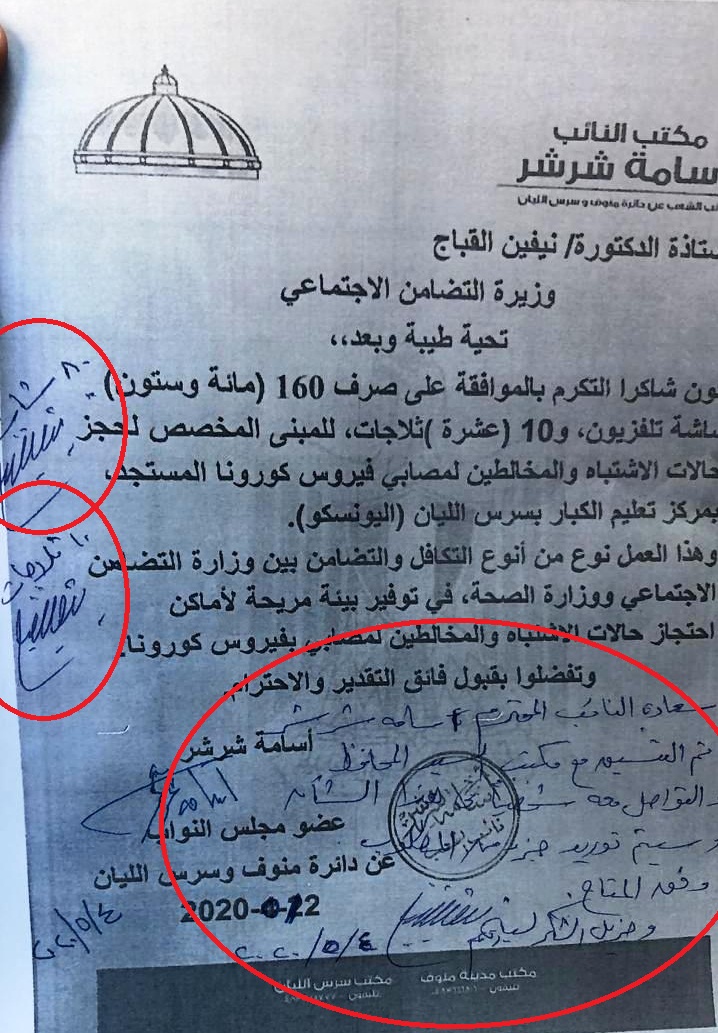 مكتب النائب
سامة شرشر
ب الشعب عن دائرة منوف وسرس الليان
ستاذة الدكتورة/ نيفين القباج
وزيرة التضامن الاجتماعي
تحية طيبة وبعد،،
ون شاكرا التكرم بالموافقة على صرف 160 (مائة وستون)
شاشة تلفزيون، و10 (عشرة )ثلاجات، للمبنى المخصص لحجز
حالات الاشتباه والمخالطين لمصابي فيروس كورونا المستجد،
بمركز تعليم الكبار بسرس الليان (اليونسكو).
وهذا العمل نوع من أنوع التكافل والتضامن بين وزارة التضامن
الاجتماعي ووزارة الصحة، في توفير بيئة مريحة لأماكن
احتجاز حالات الاشتباه والمخالطين لمصابي بفيروس كورونا.
وتفضلوا بقبول فائق التقدير والاحترام
أسامة شرشر
عضو مجلس النواب
عن دائرة منوف وسرس الليان
٨٠
١٠ ثلاجات
سعادة النائب المحترم / أسامه شرشر
تم التنسيق مع مكتب السيد المحافظ
و التواصل معه شخصيا الشأن
و سيتم توريد جزء
وفقد المتاح
و جزيل الشكر لسيادتكم
٢٠٢٠/٥/٤
مكتب مدينة منوف
مكتب سرس الليان